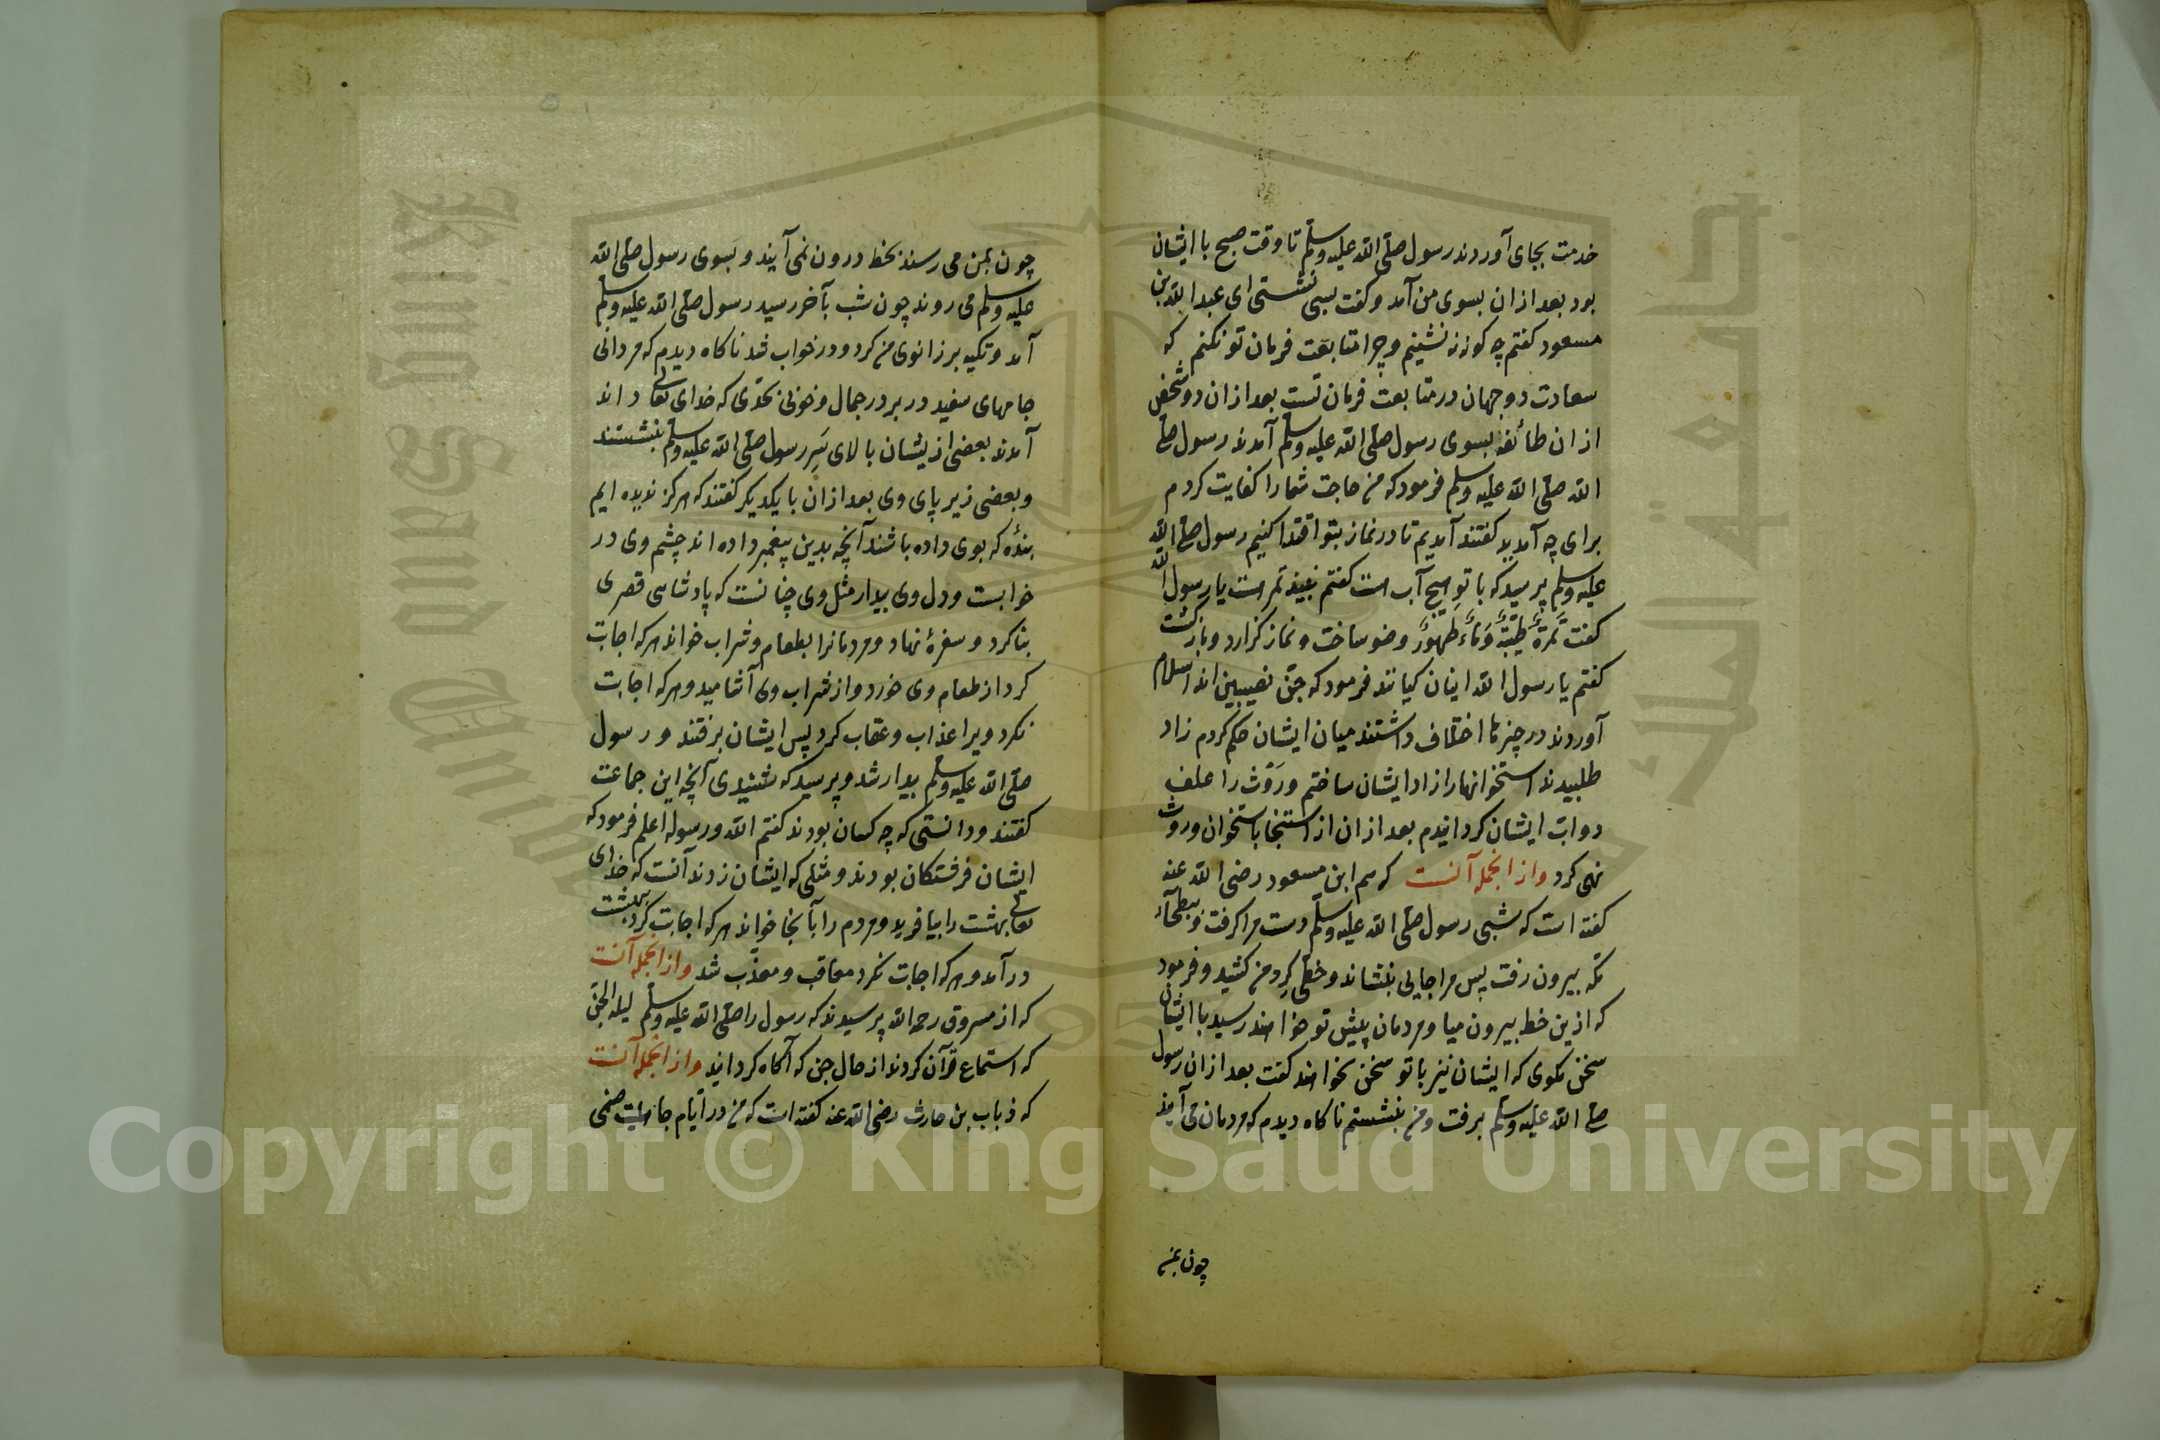 خدمت بجای آوردند رسول صلّی اللّه علیه وسلّم تا وقت صبح با ایشان
بود بعد از ان بسوی من آمد و گفت بسی نشستی ای عبد اللّه بن
مسعود گفتم چه گونه ننشینم و چرا متابعت فرمان تو نکنم که
سعادت دو جهان در متابعت فرمان تست بعد از ان دو شخص
از ان طائفه بسوی رسول صلّی اللّه علیه وسلّم آمدند رسول صلّی
اللّه صلّی اللّه علیه وسلّم فرمود که من حاجت شما را کفایت کردم
برای چه آمدید گفتند آمدیم تا در نماز بتو اقتدا کنیم رسول صلّی اللّه
علیه وسلّم پرسید که با تو هیچ آب است گفتم نبیذ تمر است یا رسول اللّه
گفت تَمرةٌ طیّبةٌ وَمَاءٌ طَهورٌ وضو ساخت و نماز گزارد و بازگشت
گفتم یا رسول اللّه اینان کیانند فرمود که جنّ نصیبین اند اسلام
آوردند در چیزها اختلاف داشتند میان ایشان حکم کردم زاد
طلبیدند استخوانها را زاد ایشان ساختم و رَوْث را علف
دوابّ ایشان گردانیدم بعد از ان از استنجا باستخوان و روث
نهی کرد واز انجمله آنست که هم ابن مسعود رضی اللّه عنه
گفته است که شبی رسول صلّی اللّه علیه وسلّم دست مرا گرفت و ببطحاء
مکّه بیرون رفت پس مرا جایی بنشاند و خطّی گِرد من کشید و فرمود
که ازین خط بیرون میا و مردمان پیش تو خواهند رسید با ایشان
سخن مگوی که ایشان نیز با تو سخن نخواهند گفت بعد از ان رسول
صلّی اللّه علیه وسلّم برفت و من بنشستم ناگاه دیدم که مردمان می آیند
چون بمن
چون بمن می رسند بخط درون نمی آیند و بسوی رسول صلّی اللّه
علیه وسلّم می روند چون شب بآخر رسید رسول صلّی اللّه علیه وسلّم
آمد و تکیه بر زانوی من کرد و در خواب شد ناگاه دیدم که مردانی
جامهای سفید در بر در جمال و خوبی بحدّی که خدای تعالی داند
آمدند بعضی از یشان بالای سَرِ رسول صلّی اللّه علیه وسلّم بنشستند
و بعضی زیر پای وی بعد از ان با یکدیگر گفتند که هرگز ندیده ایم
بندهٔ که بوی داده باشند آنچه بدین پیغمبر داده اند چشم وی در
خوابست و دل وی بیدار مثل وی چنانست که پادشاهی قصری
بنا کرد و سفرهٔ نهاد و مردمانرا بطعام و شراب خواند هر که اجابت
کرد از طعام وی خورد و از شراب وی آشامید و هر که اجابت
نکرد ویرا عذاب و عقاب کرد پس ایشان برفتند و رسول
صلّی اللّه علیه وسلّم بیدار شد و پرسید که شنیدی آنچه این جماعت
گفتند و دانستی که چه کسان بودند گفتم اللّه و رسوله اعلم فرمود که
ایشان فرشتگان بودند و مثلی که ایشان زدند آنست که خدای
تعالی بهشت را بیافرید و مردم را بآنجا خواند هر که اجابت کرد ببهشت
درآمد و هر که اجابت نکرد معاقب و معذّب شد واز انجمله آنست
که از مسروق رحمه اللّه پرسیدند که رسول را صلّی اللّه علیه وسلّم لیلة الجنّ
که استماع قرآن کردند از حال جن که آگاه گردانید واز انجمله آنست
که ذباب بن حارث رضی اللّه عنه گفته است که من در ایّام جاهلیت صنمی
Copyright © King Saud University